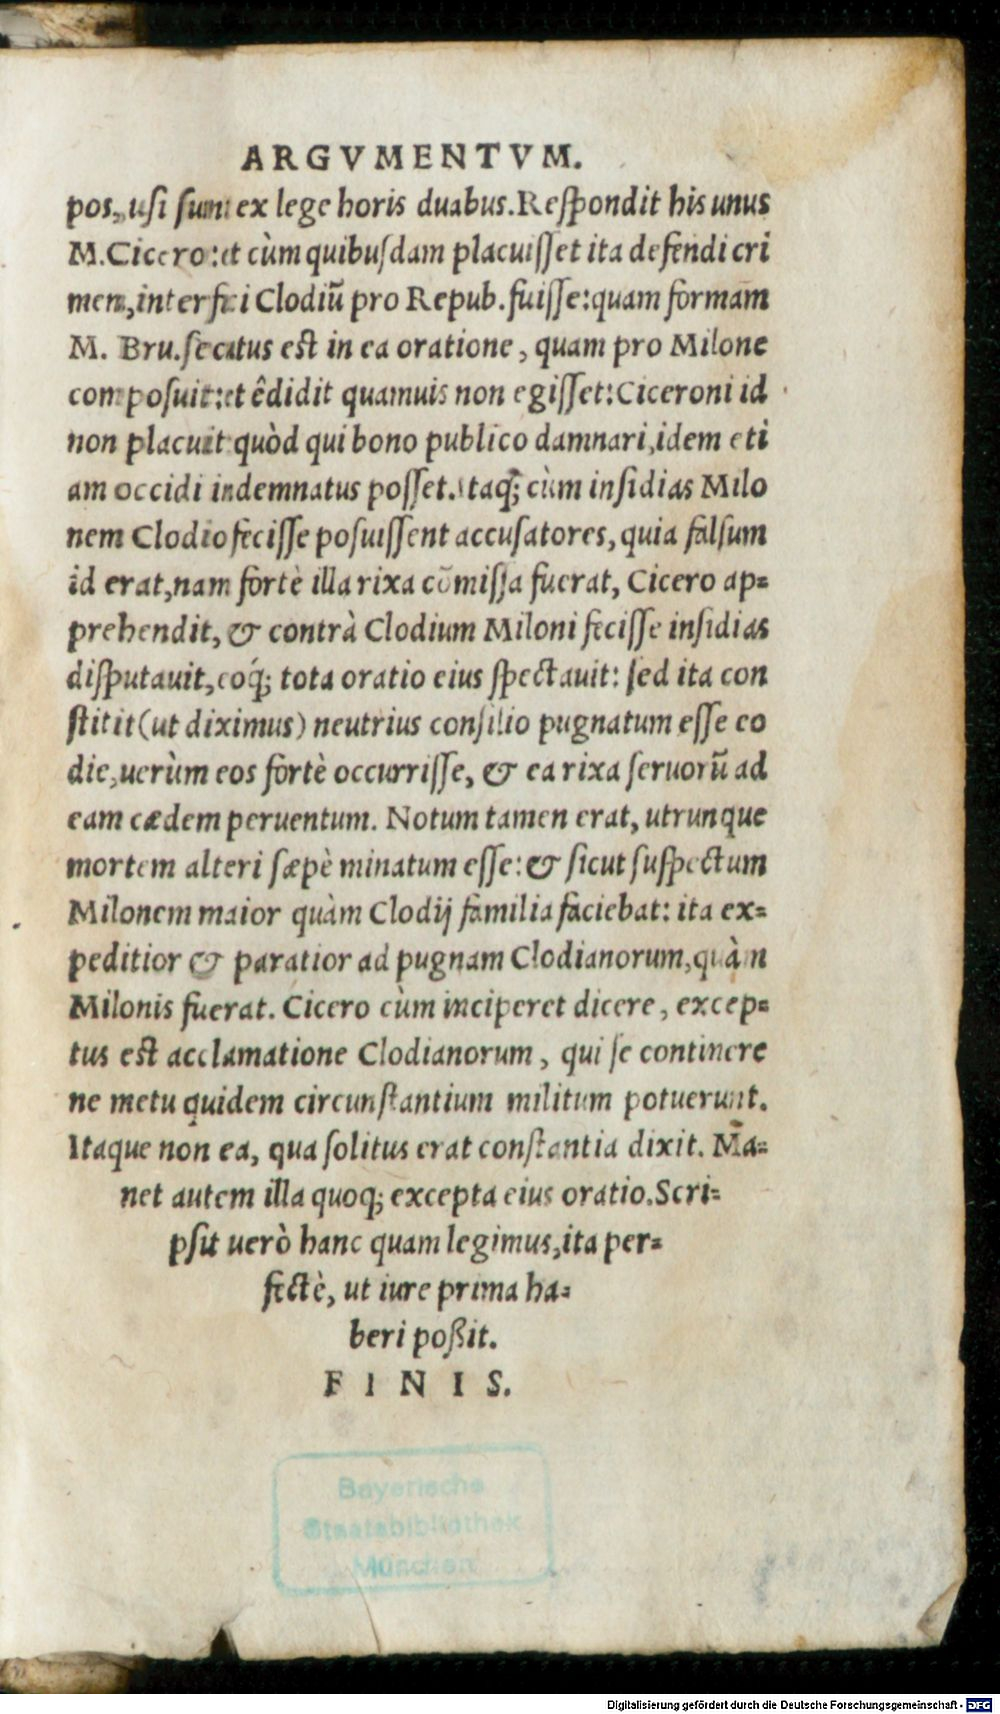 ARGVMENTVM.
pos, usi sunt ex lege horis duabus. Respondit his unus
M. Cicero: et cùm quibusdam placuisset ita defendi cri
men, interfici Clodiũ pro Repub. fuisse: quam formam
M. Bru. secutus est in ea oratione, quam pro Milone
composuit: et êdidit quamuis non egisset: Ciceroni id
non placuit quòd qui bono publico damnari, idem eti
am occidi indemnatus posset. Itaq; cùm insidias Milo
nem Clodio fecisse posuissent accusatores, quia falsum
id erat, nam fortè illa rixa cõmissa fuerat, Cicero ap=
prehendit, & contrà Clodium Miloni fecisse insidias
disputauit, eoq́; tota oratio eius spectauit: sed ita con
stitit (ut diximus) neutrius consilio pugnatum esse eo
die, uerùm eos fortè occurrisse, & ea rixa seruorũ ad
eam cædem peruentum. Notum tamen erat, utrunque
mortem alteri sæpè minatum esse: & sicut suspectum
Milonem maior quàm Clodij familia faciebat: ita ex=
peditior & paratior ad pugnam Clodianorum, quàm
Milonis fuerat. Cicero cùm inciperet dicere, excep=
tus est acclamatione Clodianorum, qui se continere
ne metu quidem circunstantium militum potuerunt.
Itaque non ea, qua solitus erat constantia dixit. Ma=
net autem illa quoq; excepta eius oratio. Scri=
psit uerò hanc quam legimus, ita per=
fectè, ut iure prima ha=
beri poßit.
FINIS.
Bayerische
Staatsbibliothek
München
Digitalisierung gefördert durch die Deutsche Forschungsgemeinschaft - DFG